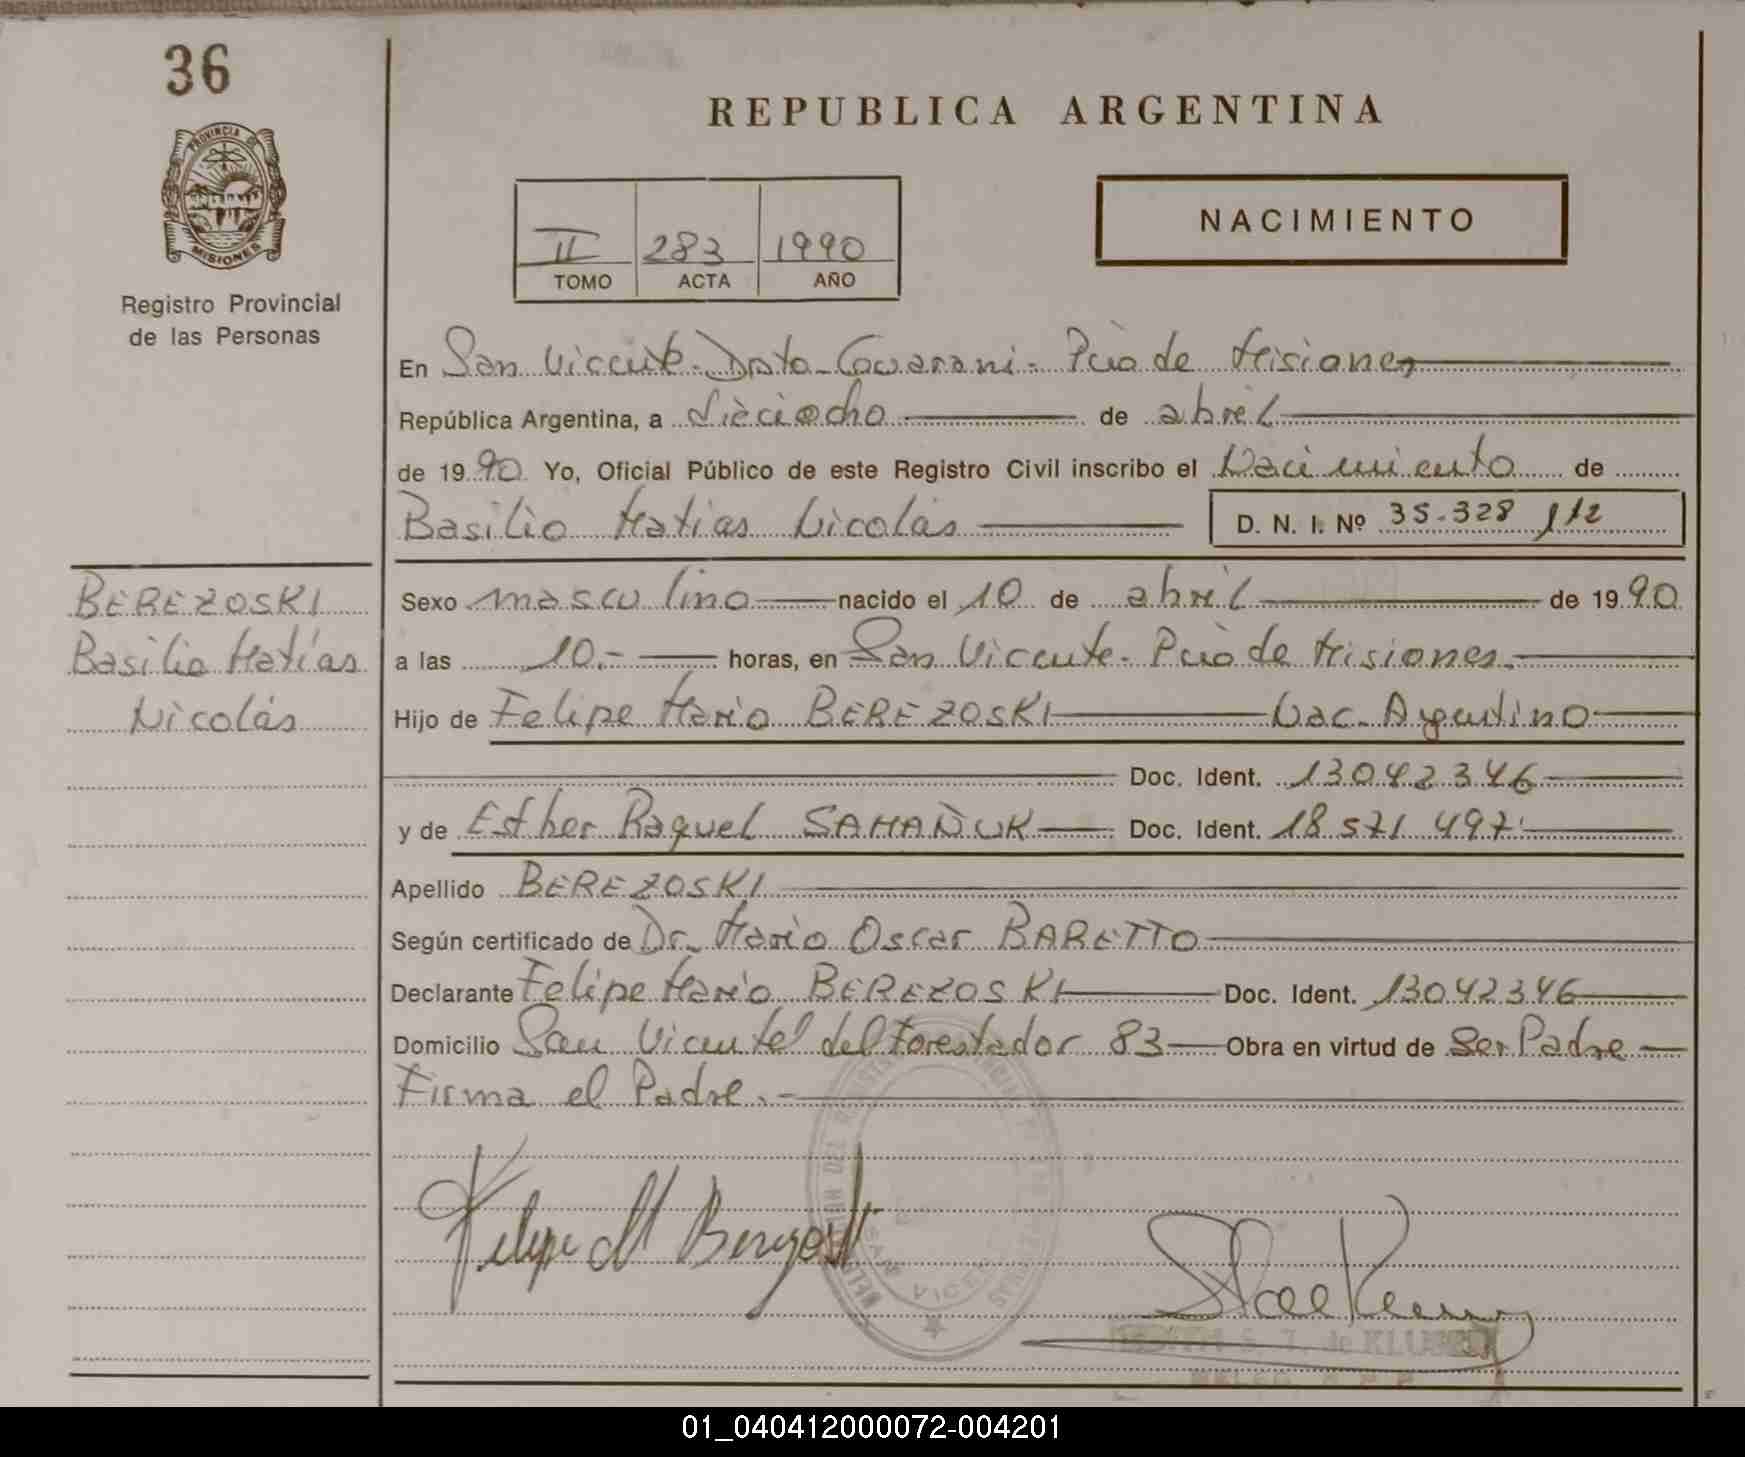 36
REPUBLICA ARGENTINA
PROVINCIA DE
MISIONES
Registro Provincial
de las Personas
II 283 1990
TOMO ACTA AÑO
NACIMIENTO
En San Vicente - Dpto - Guarani - Pcia de Misiones
República Argentina, a dieciocho de abril
de 1990 Yo, Oficial Público de este Registro Civil inscribo el Nacimiento de
Basilio Matias Nicolás D. N. I. Nº 35.328 112
BEREZOSKI
Basilio Matías
Nicolás
Sexo masculino nacido el 10 de abril de 1990
a las 10.- horas, en San Vicente - Pcia de Misiones.
Hijo de Felipe Mario BEREZOSKI Nac. Argentino
Doc. Ident. 13042346
y de Esther Raquel SAMAÑUK Doc. Ident. 18.571.497
Apellido BEREZOSKI
Según certificado de Dr. Mario Oscar BARETTO
Declarante Felipe Mario BEREZOSKI Doc. Ident. 13042346
Domicilio San Vicente del Forestador 83 Obra en virtud de Ser Padre
Firma el Padre.-
Felipe M Berezoski
SAN VICENTE
01_040412000072-004201